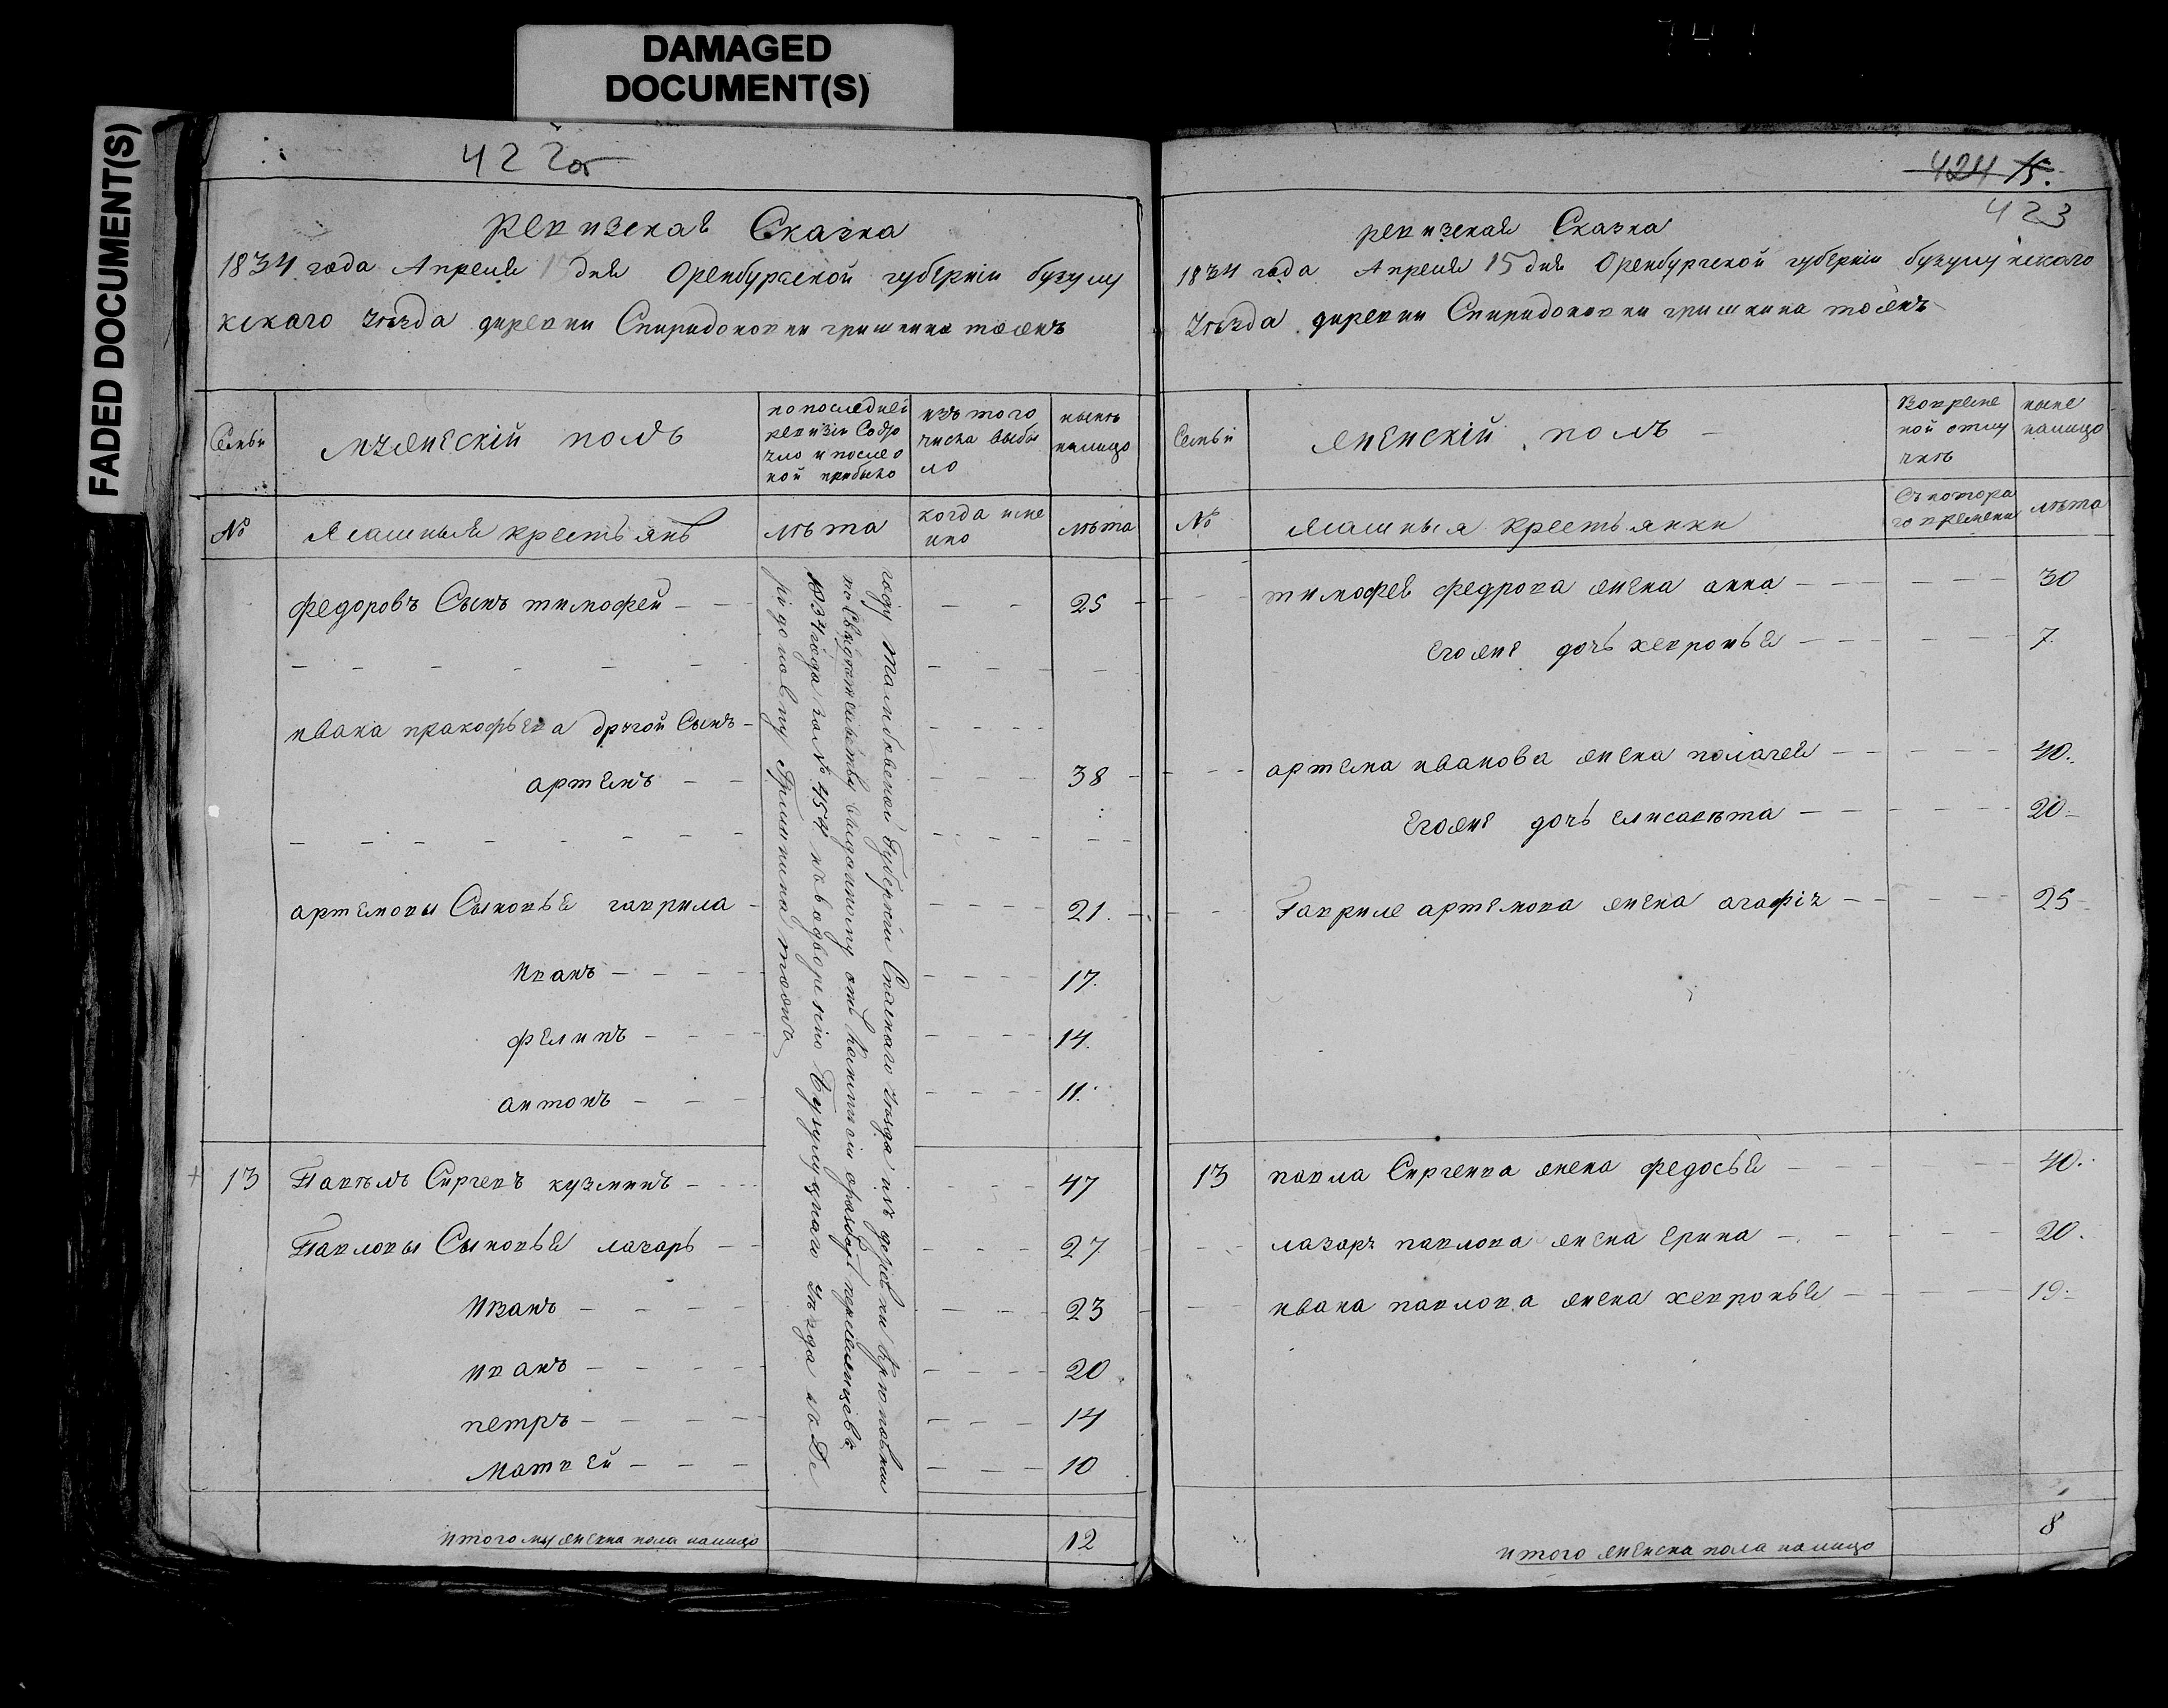 DAMAGED
DOCUMENT(S)
FADED DOCUMENT(S)
422об
ревизская Сказка
1834 года Апреля 15 дня Оренбургской губернiи бузулу
кскаго уѣзда диревни Спиридоновки гришкина тожъ
Семьи
мужескiй полъ
попоследней
ревизiи Состо
яло и после о
ной прибыло
изъ того
числа выбы
ло
нынѣ
налицо
№
Ясашныя крестьянѣ
лѣта
когда имє
нно
лѣта
федоровъ Сынъ тимофей
25
ивана пракофьева другой Сынъ
артемъ
38
артемовы Сыновья гаврила
21.
Иванъ
17.
фелипъ
14.
антонъ
11.
13
Павѣлъ Сиргевъ кузминъ
47
Павловы Сыновья лазарь
27
Иванъ
23
иванъ
20
петръ
14
Матвей
10
году Тамбовской Губернiи Спаскаго уѣзда изъ деревни
по Свидѣтельству выданному отъ
1834 года за № 454 къ водворенiю Бузулуцкаго уѣзда въ Де
ридоновку Гришкина тожъ
итого мужеска пола налицо
12
424 15.
423
ревизская Сказка
1834 года Апреля 15 дня Оренбургской губернiи бузулукскаго
уѣзда диревни Спиридоновки гришкина тожъ
Семьи
женскiй полъ
Вовреме
ной отлу
чкѣ
ныне
налицо
№
ясашныя крестьянки
Съ котора
го времени
лѣта
тимофея федрова жена анна
30
Егоже дочь хевронья
7.
артема иванова жена полагея
40.
Егоже дочь елисавѣта
20
Гавриле артемова жена агафiя
25
13
павла Сиргеива жена федосья
40.
лазаръ павлова жена ерина
20.
ивана павлова жена хевронья
19.
итого женска пола налицо
8